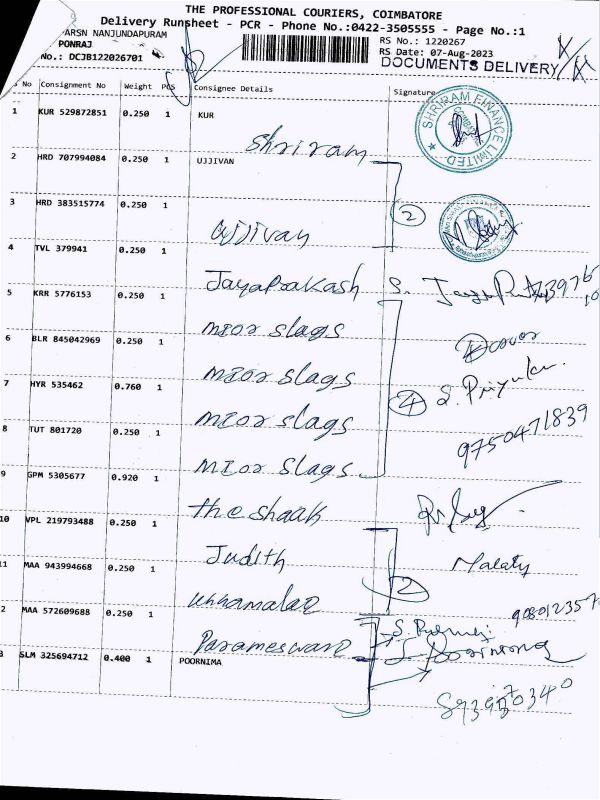 THE PROFESSIONAL COURIERS, COIMBATORE
Delivery Runsheet - PCR - Phone No.:0422-3505555 - Page No.:1
ARSN NANJUNDAPURAM
RS No.: 1220267
PONRAJ
RS Date: 07-Aug-2023
No.: DCJB122026701
DOCUMENTS DELIVERY
No Consignment No Weight PCS Consignee Details Signature
1 KUR 529872851 0.250 1 KUR
Shriram
SHRIRAM FINANCE LIMITED
2 HRD 707994084 0.250 1 UJJIVAN
3 HRD 383515774 0.250 1
2
Ujjivan
4 TVL 379941 0.250 1
Jayaprakash S.
5 KRR 5776153 0.250 1
mior slags
6 BLR 845042969 0.250 1
mior slags
7 HYR 535462 0.760 1
4 S. Priyanka
mior slags
9750471839
8 TUT 801720 0.250 1
mior slags
9 GPM 5305677 0.920 1
the shaak
10 VPL 219793488 0.250 1
Judith
Malaty
11 MAA 943994668 0.250 1
2
2 MAA 572609688 0.250 1
Parameswari
3 SLM 325694712 0.400 1 POORNIMA